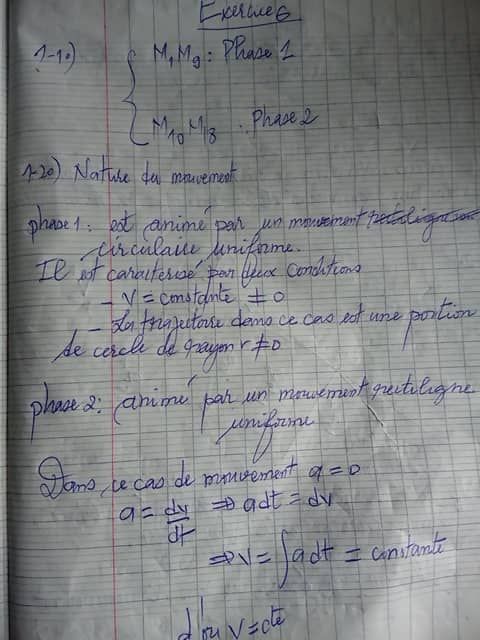 Exercice 6
1-1°) { M₁M₉ : Phase 1
M₁₀M₁₈ : Phase 2
1-2°) Nature du mouvement
phase 1 : est animé par un mouvement rectiligne
circulaire uniforme.
Il est caractérisé par deux conditions
- V = constante ≠ 0
- La trajectoire dans ce cas est une portion
de cercle de rayon r ≠ 0
phase 2 : animé par un mouvement rectiligne
uniforme
Dans ce cas de mouvement a = 0
a = dv/dt ⇒ adt = dv
⇒ v = ∫adt = constante
d'où V = cte